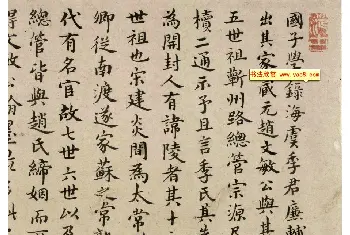 國子學錄海雲季君廉輔
出其家藏元趙文敏公與其
五世祖蘄州路總管宗源尺
牘二通示予且言季氏其先
為開封人有諱陵者其十
世祖也宗建炎間為太常
卿從南渡遂家蘇之常熟
代有名官故七世六世以及
總管皆與趙氏締姻而
得文敏公
书法欣赏 www.yac8.com